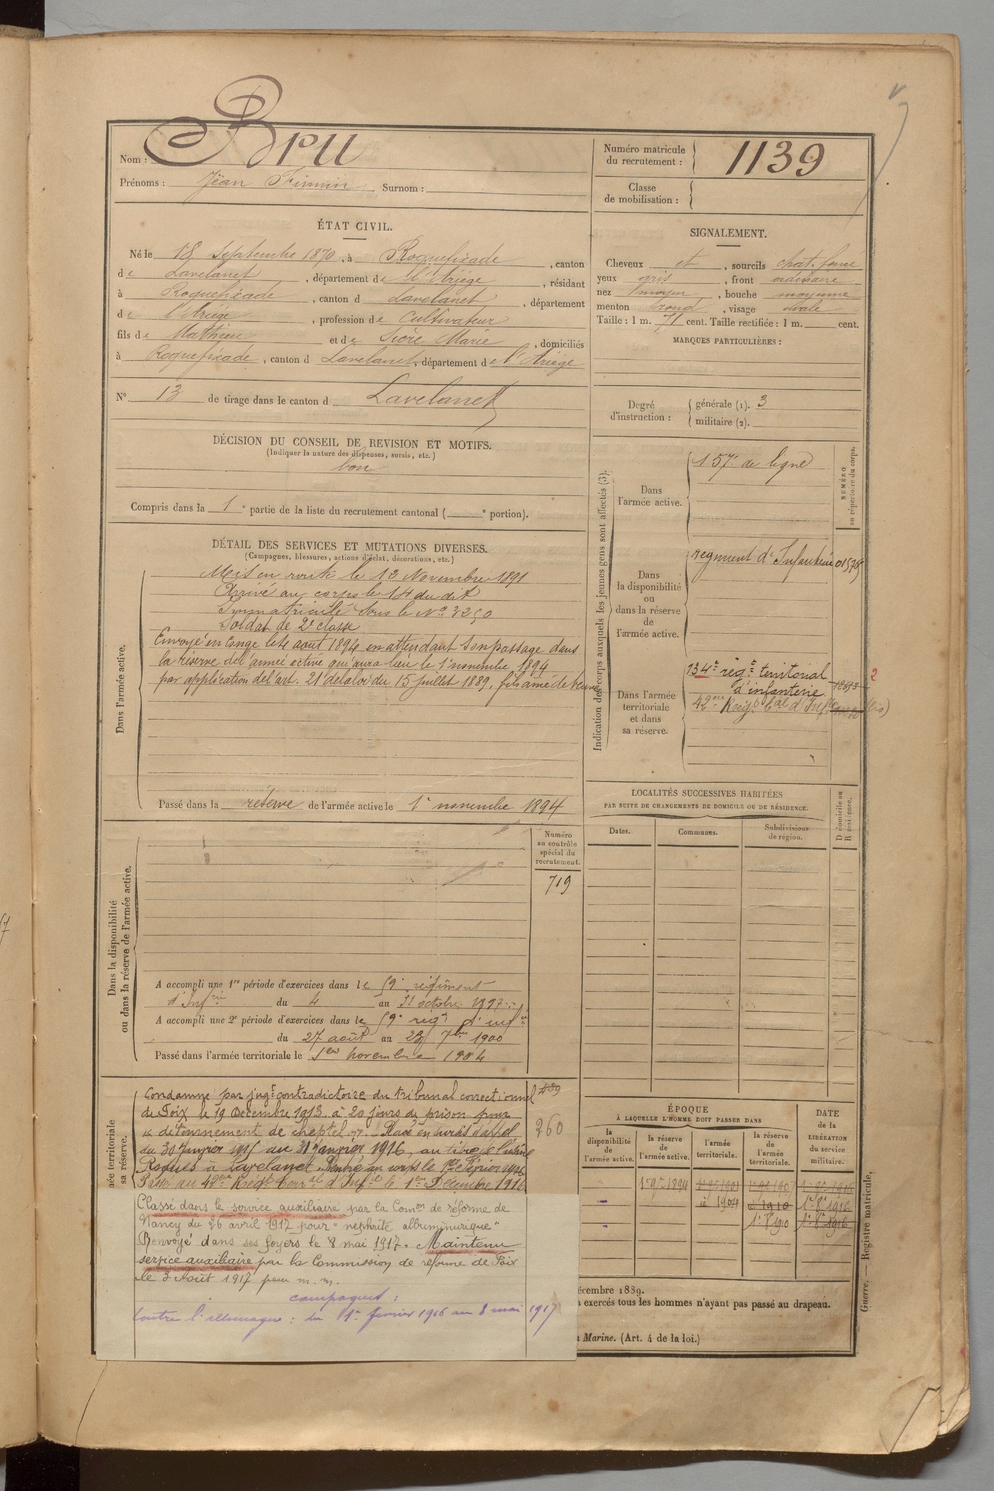 Nom : Bru
Prénoms : Jean Firmin Surnom :
Numéro matricule du recrutement : 1139
Classe de mobilisation :
ÉTAT CIVIL.
Né le 18 Septembre 1870, à Roquefixade, canton
de Lavelanet, département de l'Ariège, résidant
à Roquefixade, canton d Lavelanet, département
de l'Ariège, profession de cultivateur
fils de Mathieu et de Siòre Marie, domiciliés
à Roquefixade, canton d Lavelanet, département de l'Ariège
N° 13 de tirage dans le canton d Lavelanet
SIGNALEMENT.
Cheveux et, sourcils chat. foncé
yeux gris, front ordinaire
nez moyen, bouche moyenne
menton rond, visage ovale
Taille : 1 m. 71 cent. Taille rectifiée : 1 m. cent.
MARQUES PARTICULIÈRES :
Degré d'instruction : générale (1). 3
militaire (2).
DÉCISION DU CONSEIL DE REVISION ET MOTIFS.
(Indiquer la nature des dispenses, sursis, etc.)
bon
Compris dans la 1e partie de la liste du recrutement cantonal ( e portion).
DÉTAIL DES SERVICES ET MUTATIONS DIVERSES.
(Campagnes, blessures, actions d'éclat, décorations, etc.)
Dans l'armée active.
Mis en route le 13 Novembre 1891
Arrivé au corps le 14 du dit
Immatriculé sous le N° 3250
Soldat de 2e classe
Envoyé en congé le 4 août 1894 en attendant son passage dans
la réserve de l'armée active qui aura lieu le 1er novembre 1894
par application de l'art. 21 de la loi du 15 juillet 1889, fils ainé de veuve
Passé dans la réserve de l'armée active le 1er novembre 1894
Indication des corps auxquels les jeunes gens sont affectés (3).
NUMÉRO au répertoire du corps.
Dans l'armée active.
157e de ligne
Dans la disponibilité ou dans la réserve de l'armée active.
régiment d'Infanterie
Dans l'armée territoriale et dans sa réserve.
134e régt territorial
d'infanterie
42eme Reigt tal d'Infie
2
LOCALITÉS SUCCESSIVES HABITÉES
PAR SUITE DE CHANGEMENTS DE DOMICILE OU DE RÉSIDENCE.
Dates. Communes. Subdivisions de région. Domicile ou Résidence.
Dans la disponibilité ou dans la réserve de l'armée active.
Numéro au contrôle spécial du recrutement.
719
A accompli une 1re période d'exercices dans le 59e régiment
d'Infrie du 4 au 31 octobre 1897
A accompli une 2e période d'exercices dans le 59e régt d'infie
du 27 août au 23 7bre 1900
Passé dans l'armée territoriale le 1er novembre 1904
née territoriale
sa réserve.
Condamné par jugt contradictoire du tribunal correctionnel
de Foix le 19 Décembre 1913 à 20 jours de prison pour
détournement de cheptel. Placé en sursis d'appel
du 30 Janvier 1916 au 31 Janvier 1916, au titre de l'usine
Roques à Lavelanet. Rentré au corps le 1er Février 1916
Passé au 42eme Régt Terral d'Infie le 1er Décembre 1916
260
Classé dans le service auxiliaire par la Comon de réforme de
Nancy du 26 avril 1917 pour "néphrite albuminurique"
Renvoyé dans ses foyers le 8 mai 1917. Maintenu
service auxiliaire par la Commission de réforme de Foix
le 3 Août 1917 pour m. m.
campagnes :
Contre l'allemagne : du 1er février 1916 au 8 mai 1917
ÉPOQUE
À LAQUELLE L'HOMME DOIT PASSER DANS
la disponibilité de l'armée active. la réserve de l'armée active. l'armée territoriale. la réserve de l'armée territoriale.
DATE DE LA LIBÉRATION DU SERVICE MILITAIRE.
1er 9bre 1894
décembre 1889.
s exercés tous les hommes n'ayant pas passé au drapeau.
Marine. (Art. 4 de la loi.)
Guerre. — Registre matricule.